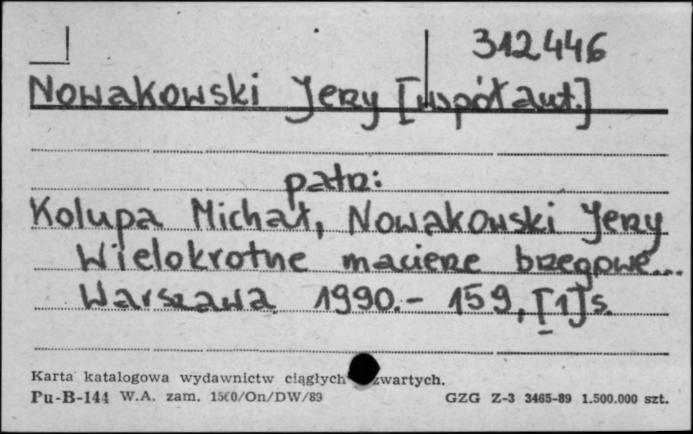 312446
Nowakowski Jerzy [współaut.]
patrz:
Kolupa Michał, Nowakowski Jerzy
Wielokrotne macierze brzegowe...
Warszawa 1990.- 159, [1] s.
Karta katalogowa wydawnictw ciągłych zwartych.
Pu-B-144 W.A. zam. 1560/On/DW/89 GZG Z-3 3465-89 1.500.000 szt.